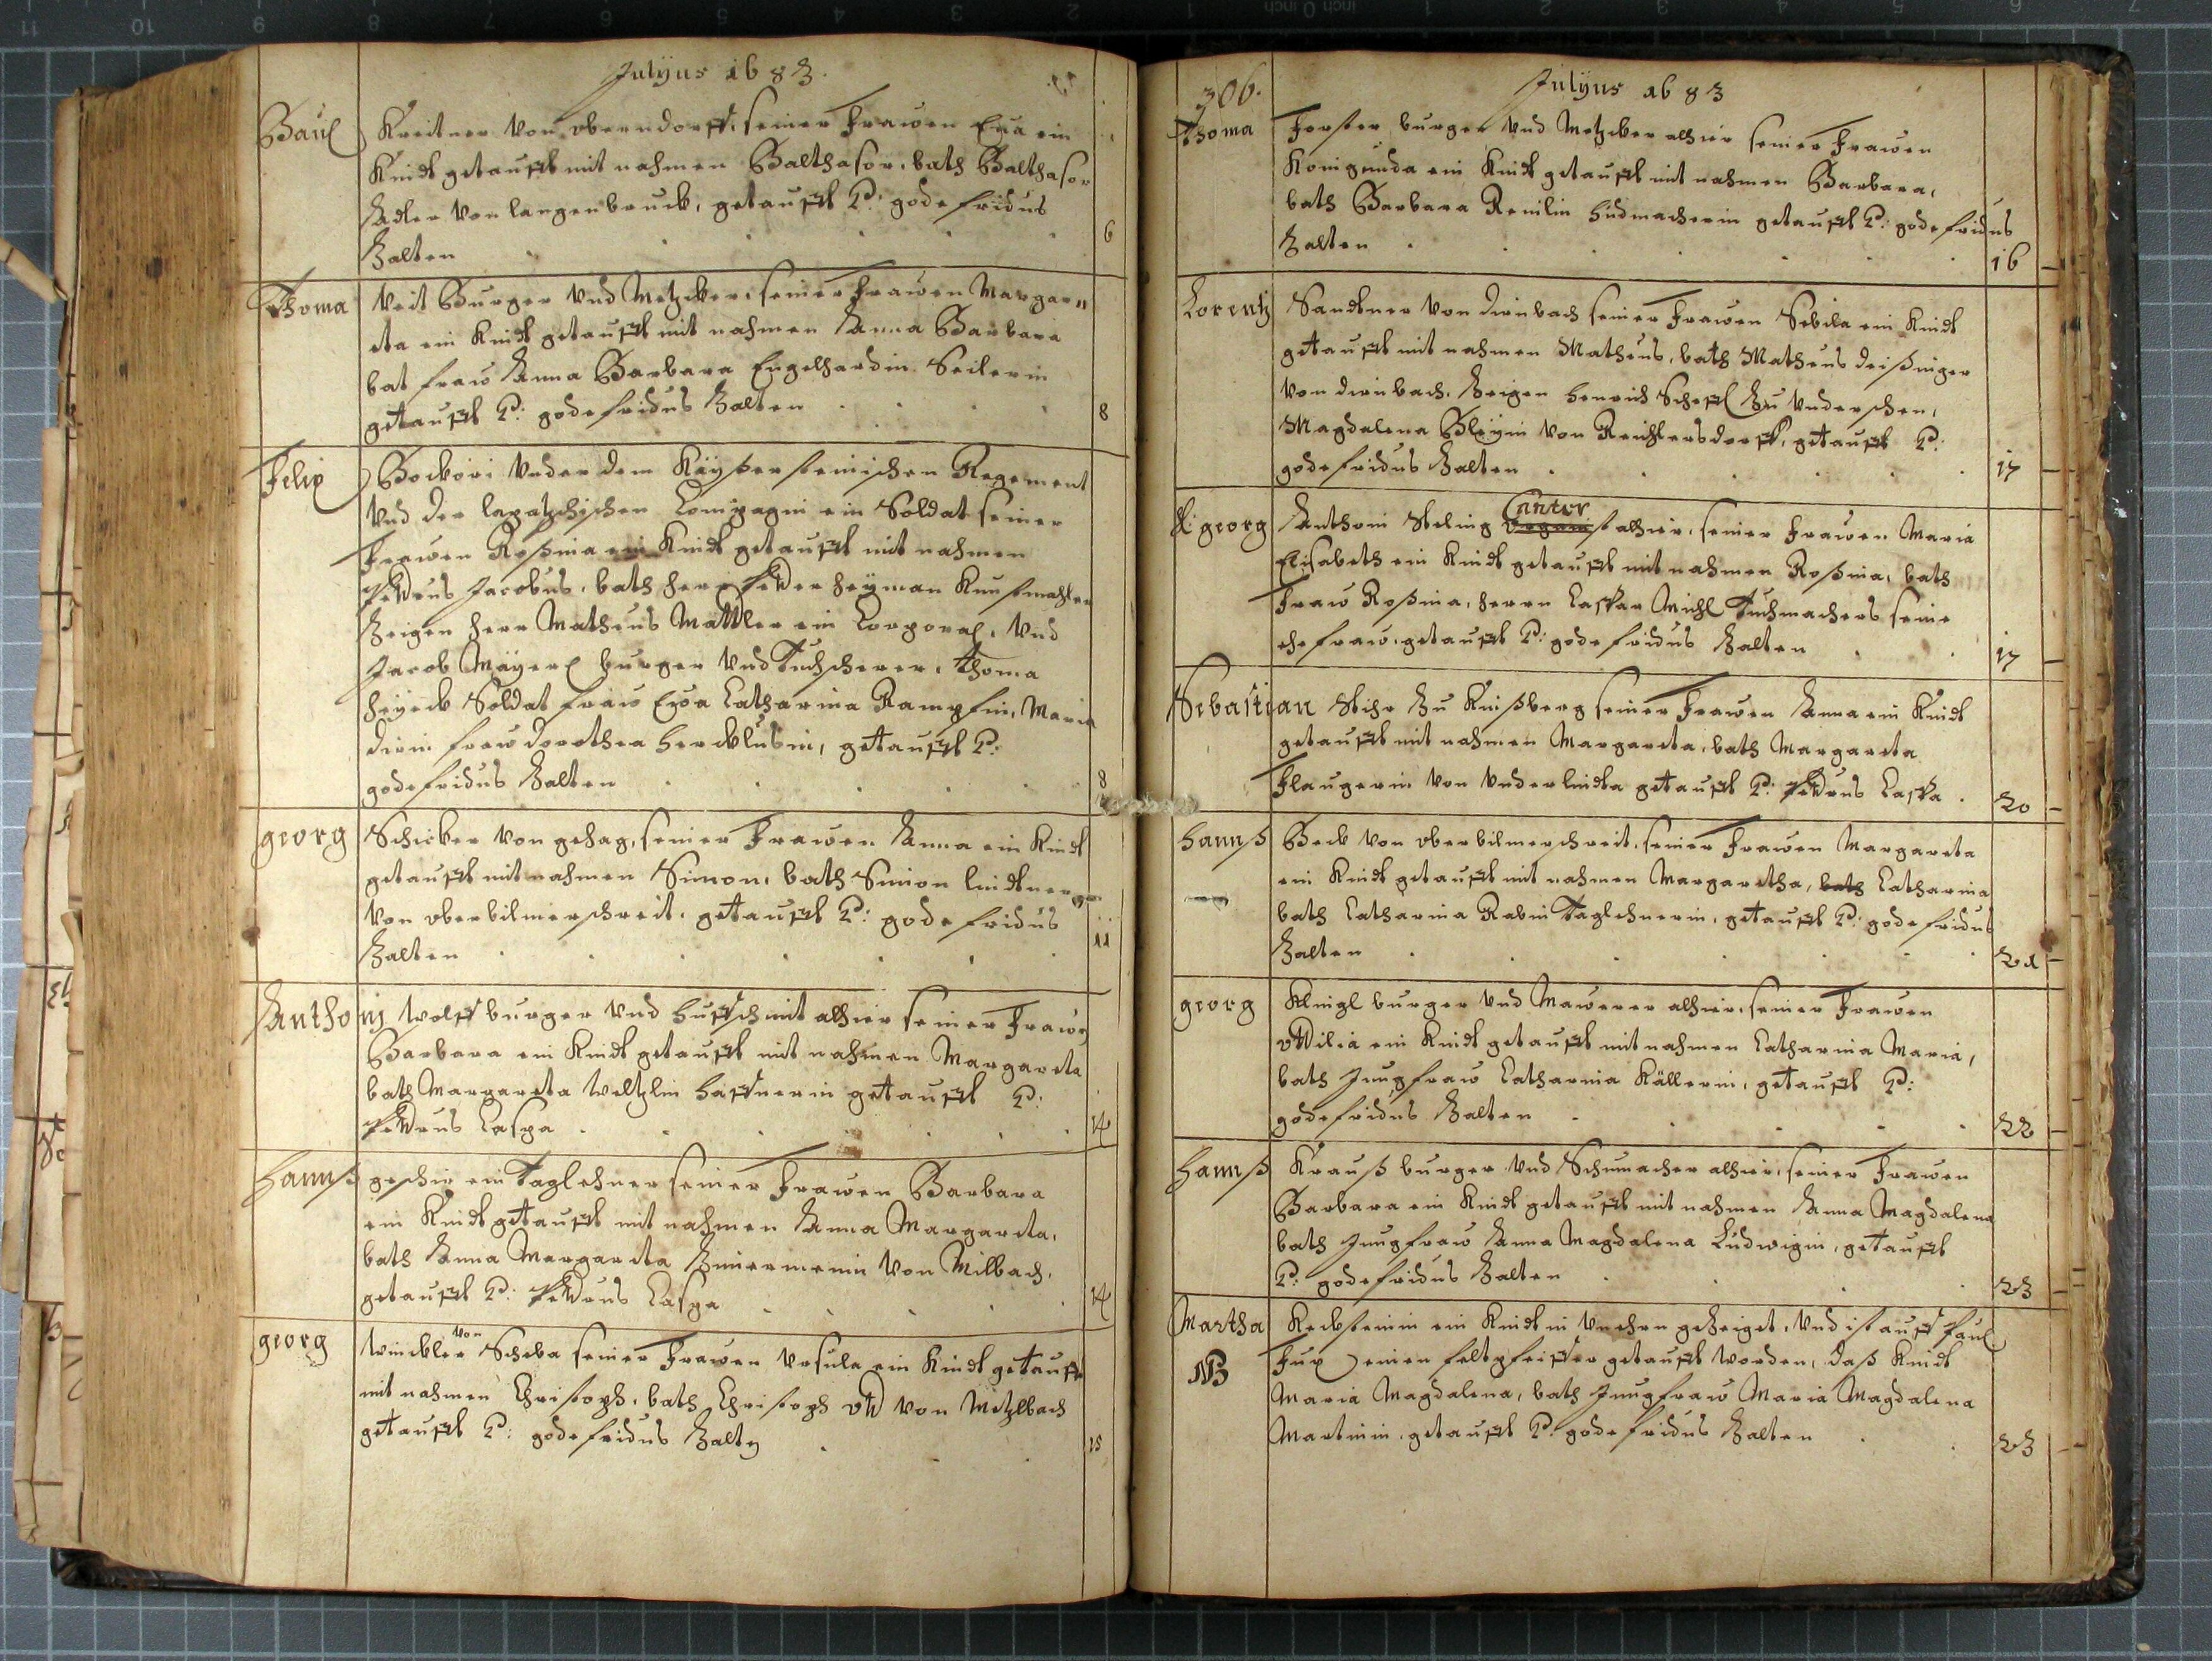 Julÿus 1683.
Baul Kreitner Von oberndorff, seiner Frawen Eua ein
Kindt getaufft mit nahmen Balthasor, bath Balthasor
Adler Von langenbruck, getaufft P: godefridus
Balten 6
Thoma Veit Burger Vnd Metzcker, seiner Frawen Margar
eta ein Kindt getaufft mit nahmen Anna Barbara
bat fraw Anna Barbara Engelhardin Seilerin
getaufft P: godefridus Balten 8
Felix Vnder dem Regement
Vnd der Compagni ein Soldat seiner
Frawen Roßina ein Kindt getaufft mit nahmen
Petrus Jacobus, bath herr Petter heÿman
Zeigen herr Matheus Mattler ein Corporal, Vnd
Jacob Maÿerl burger Vnd Tuchscherer, Thoma
Soldat fraw Eva Catharina Rampfin, Maria
fraw dorothea getaufft P:
godefridus Balten 8
georg Schicker Von gehag, seiner Frawen Anna ein Kindt
getaufft mit nahmen Simon, bath Simon lindtner
Von oberbilmerschreit, getaufft P: godefridus
Balten 11
Anthonj Wolff burger Vnd huffschmit alhier seiner Frawen
Barbara ein Kindt getaufft mit nahmen Margareta
bath Margareta Weltzlin haffnerin getaufft P:
Petrus Caspa 14
Hannß geschir ein Taglehner seiner Frawen Barbara
ein Kindt getaufft mit nahmen Anna Margareta,
bath Anna Margareta Zimermenin Von Milbach,
getaufft P: Petrus Caspa 14
georg Winckler von Scheba seiner Frawen Vrsula ein Kindt getaufft
mit nahmen Christoph, bath Christoph ott Von Metzlbach
getaufft P: godefridus Balten 15
306. Julÿus 1683
Thoma Forster burger Vnd Metzcker alhier seiner Frawen
Konigunda ein Kindt getaufft mit nahmen Barbara,
bath Barbara hudmacherin getaufft P: godefridus
Balten 16
Lorentz Sandtner Von dirnbach seiner Frawen Sebila ein Kindt
getaufft mit nahmen Matheus, bath Matheus deißinger
Von dirnbach. Zeigen henrich Zu
Magdalena Von Reichlersdorff, getaufft P:
godefridus Balten 17
H: georg Anthoni Steling Cantor alhier, seiner Frawen Maria
Elisabeth ein Kindt getaufft mit nahmen Roßina, bath
Fraw Roßina, herrn Caspar Michl Tuchmachers seine
ehefraw, getaufft P: godefridus Balten 17
Sebastian Stihr Zu Kinßberg seiner Frawen Anna ein Kindt
getaufft mit nahmen Margareta, bath Margareta
Flaugerin Von Vnderlindta getaufft P: Petrus Caspa 20
Hannß Beck Von oberbilmerschreit, seiner Frawen Margareta
ein Kindt getaufft mit nahmen Margaretha, bath Catharina
bath Catharina Rabin Taglehnerin, getaufft P: godefridus
Balten 21
georg Klingl burger Vnd Mawerer alhier, seiner Frawen
ottilia ein Kindt getaufft mit nahmen Catharina Maria,
bath Jungfraw Catharina Källerin, getaufft P:
godefridus Balten 22
Hannß Krauß burger Vnd Schumacher alhier, seiner Frawen
Barbara ein Kindt getaufft mit nahmen Anna Magdalena
bath Jungfraw Anna Magdalena Ludwigin, getaufft
P: godefridus Balten 23
Martha Reckhsteinin ein Kindt in Vnehren gezeiget, Vnd ist auff Paul
NB Fux einen getaufft worden, daß Kindt
Maria Magdalena, bath Jungfraw Maria Magdalena
Martinin, getaufft P: godefridus Balten 23